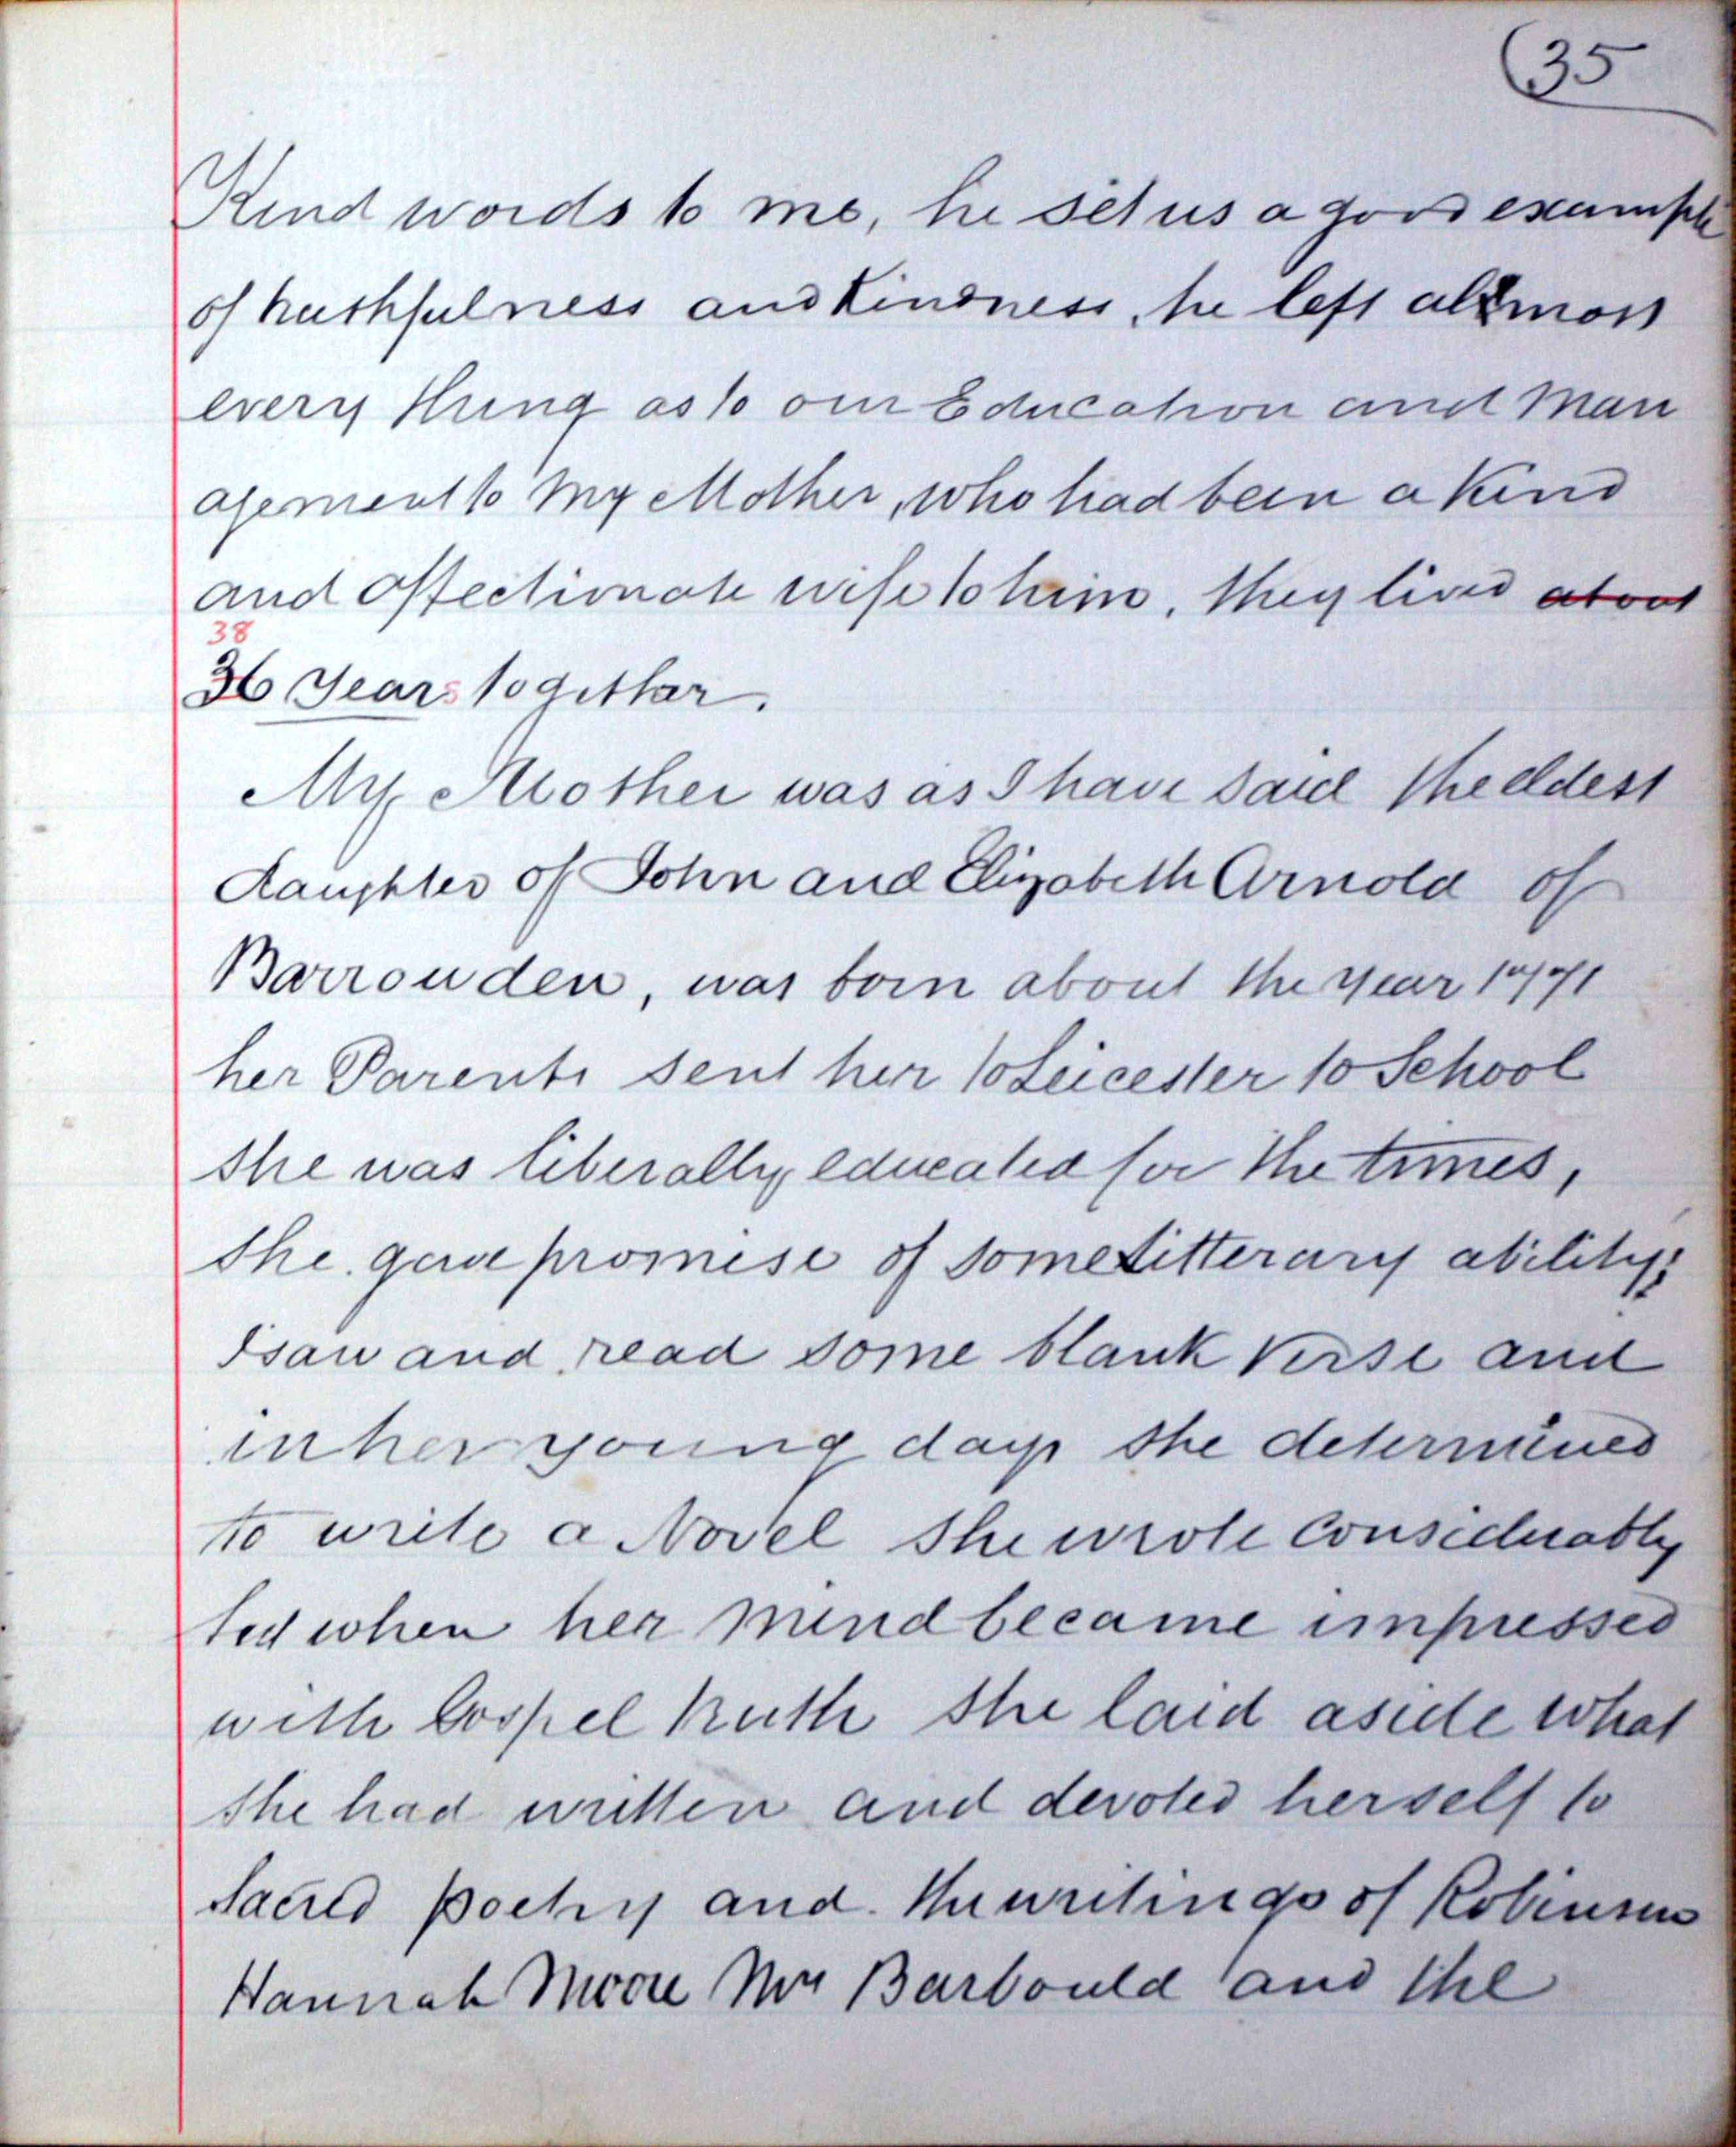 (35
Kind words to me, he set us a good example
of truthfulness and kindness, he left almost
every thing as to our Education and Man
agement to my Mother, who had been a kind
and affectionate wife to him, they lived about
38
36 years together.
My Mother was as I have said the eldest
daughter of John and Elizabeth Arnold of
Barrowden, was born about the year 1771
her Parents sent her to Leicester to School
she was liberally educated for the times,
she gave promise of some litterary ability;
I saw and read some blank verse and
in her young days she determined
to write a Novel she wrote considerably
but when her mind became impressed
with Gospel truth she laid aside what
she had written and devoted herself to
Sacred poetry and the writings of Robinson
Hannah Moore Mrs Barbould and the